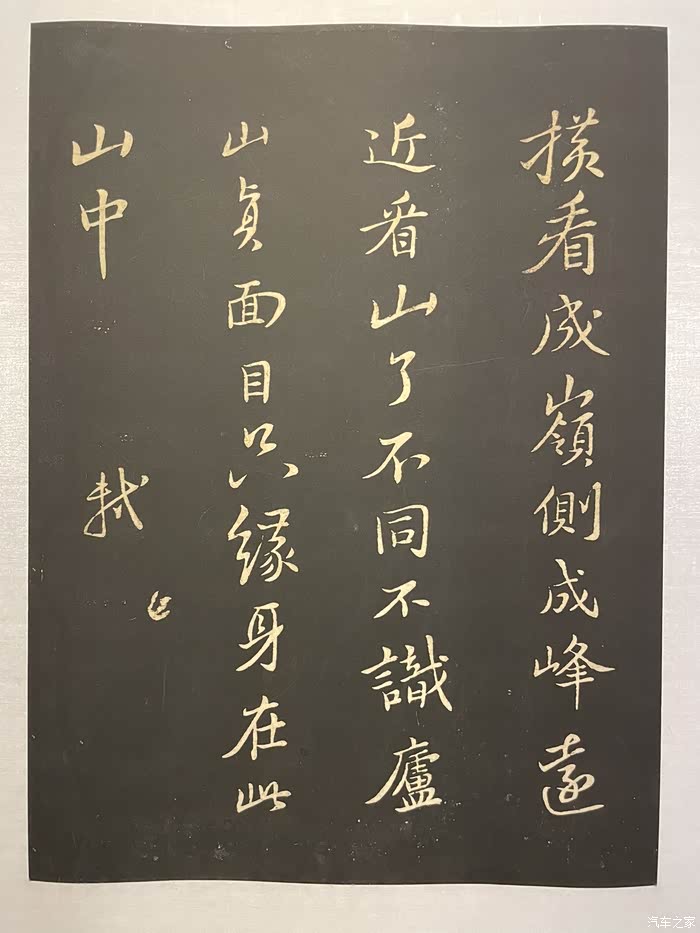 橫看成嶺側成峰遠
近看山了不同不識廬
山真面目只緣身在此
山中
軾
汽车之家